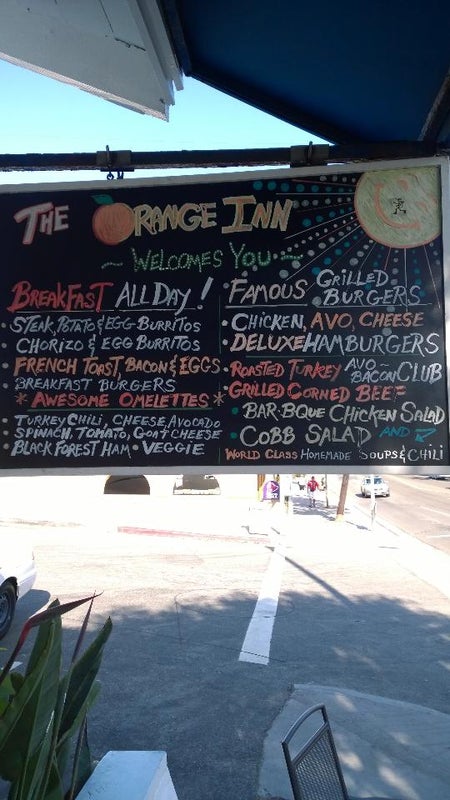 THE ORANGE INN
~ WELCOMES YOU ~
BREAKFAST ALL DAY!
• STEAK, POTATO & EGG BURRITOS
CHORIZO & EGG BURRITOS
• FRENCH TOAST, BACON & EGGS
• BREAKFAST BURGERS
* AWESOME OMELETTES *
TURKEY CHILI, CHEESE, AVOCADO
SPINACH, TOMATO, GOAT CHEESE
BLACK FOREST HAM • VEGGIE
• FAMOUS GRILLED BURGERS
CHICKEN, AVO, CHEESE
DELUXE HAMBURGERS
• ROASTED TURKEY AVO BACON CLUB
• GRILLED CORNED BEEF
BAR-BQUE CHICKEN SALAD
• COBB SALAD AND
WORLD CLASS HOMEMADE SOUPS & CHILI